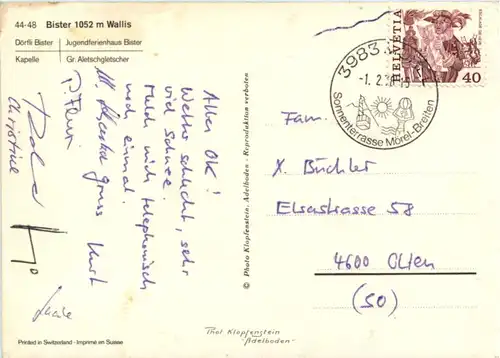 44-48 Bister 1052 m Wallis
Dörfli Bister
Jugendferienhaus Bister
Kapelle
Gr. Aletschgletscher
Alles OK!
Wetter schlecht, sehr
viel Schnee.
Meld mich telephonisch
noch einmal.
gruss Kurt
Christine
© Photo Klopfenstein, Adelboden - Reproduktion verboten
HELVETIA
40
3983
-1. 2.
Sonnenterrasse Mörel-Breiten
Fam.
X. Büchler
Elsastrasse 58
4600 Olten
(SO)
Printed in Switzerland - Imprimé en Suisse
Phot Klopfenstein
"Adelboden"